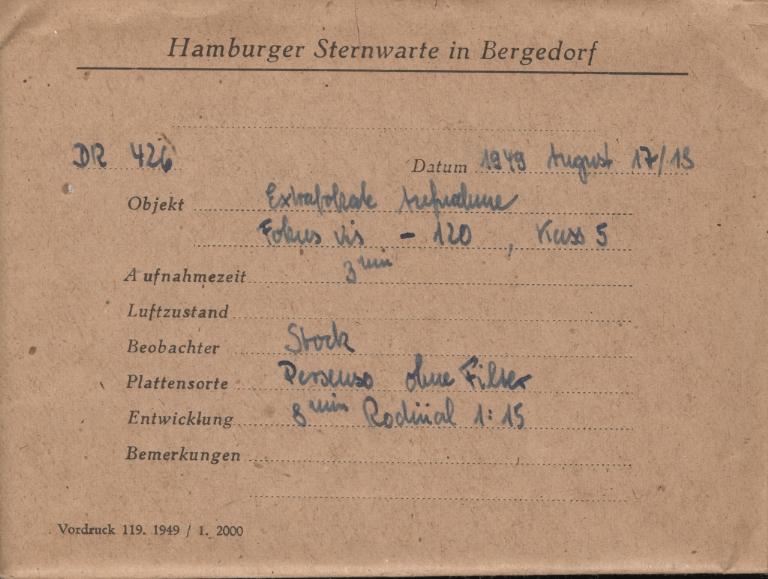 Hamburger Sternwarte in Bergedorf
DR 426 Datum 1949 August 17/18
Objekt Extrafokale Aufnahme
Fokus vis - 120 , Kass 5
Aufnahmezeit 3 min
Luftzustand
Beobachter Stock
Plattensorte Persenso ohne Filter
Entwicklung 8 min Rodinal 1:15
Bemerkungen
Vordruck 119. 1949 / 1. 2000